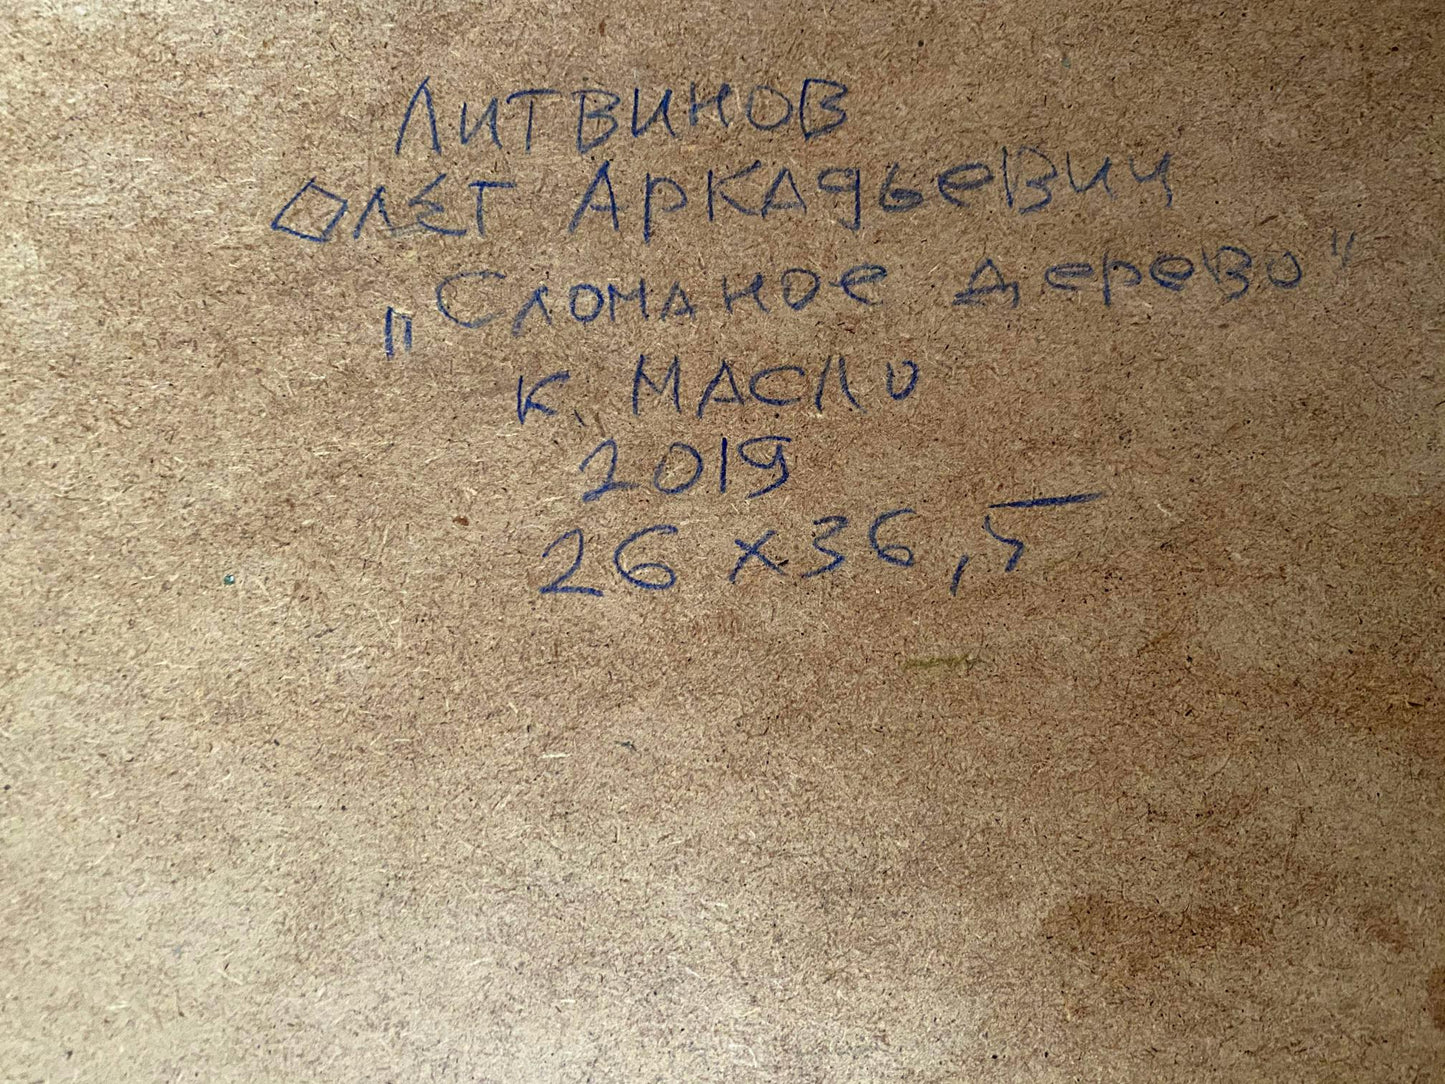 Литвинов
Олег Аркадьевич
„Сломаное дерево"
к. масло
2019
26 x 36,5